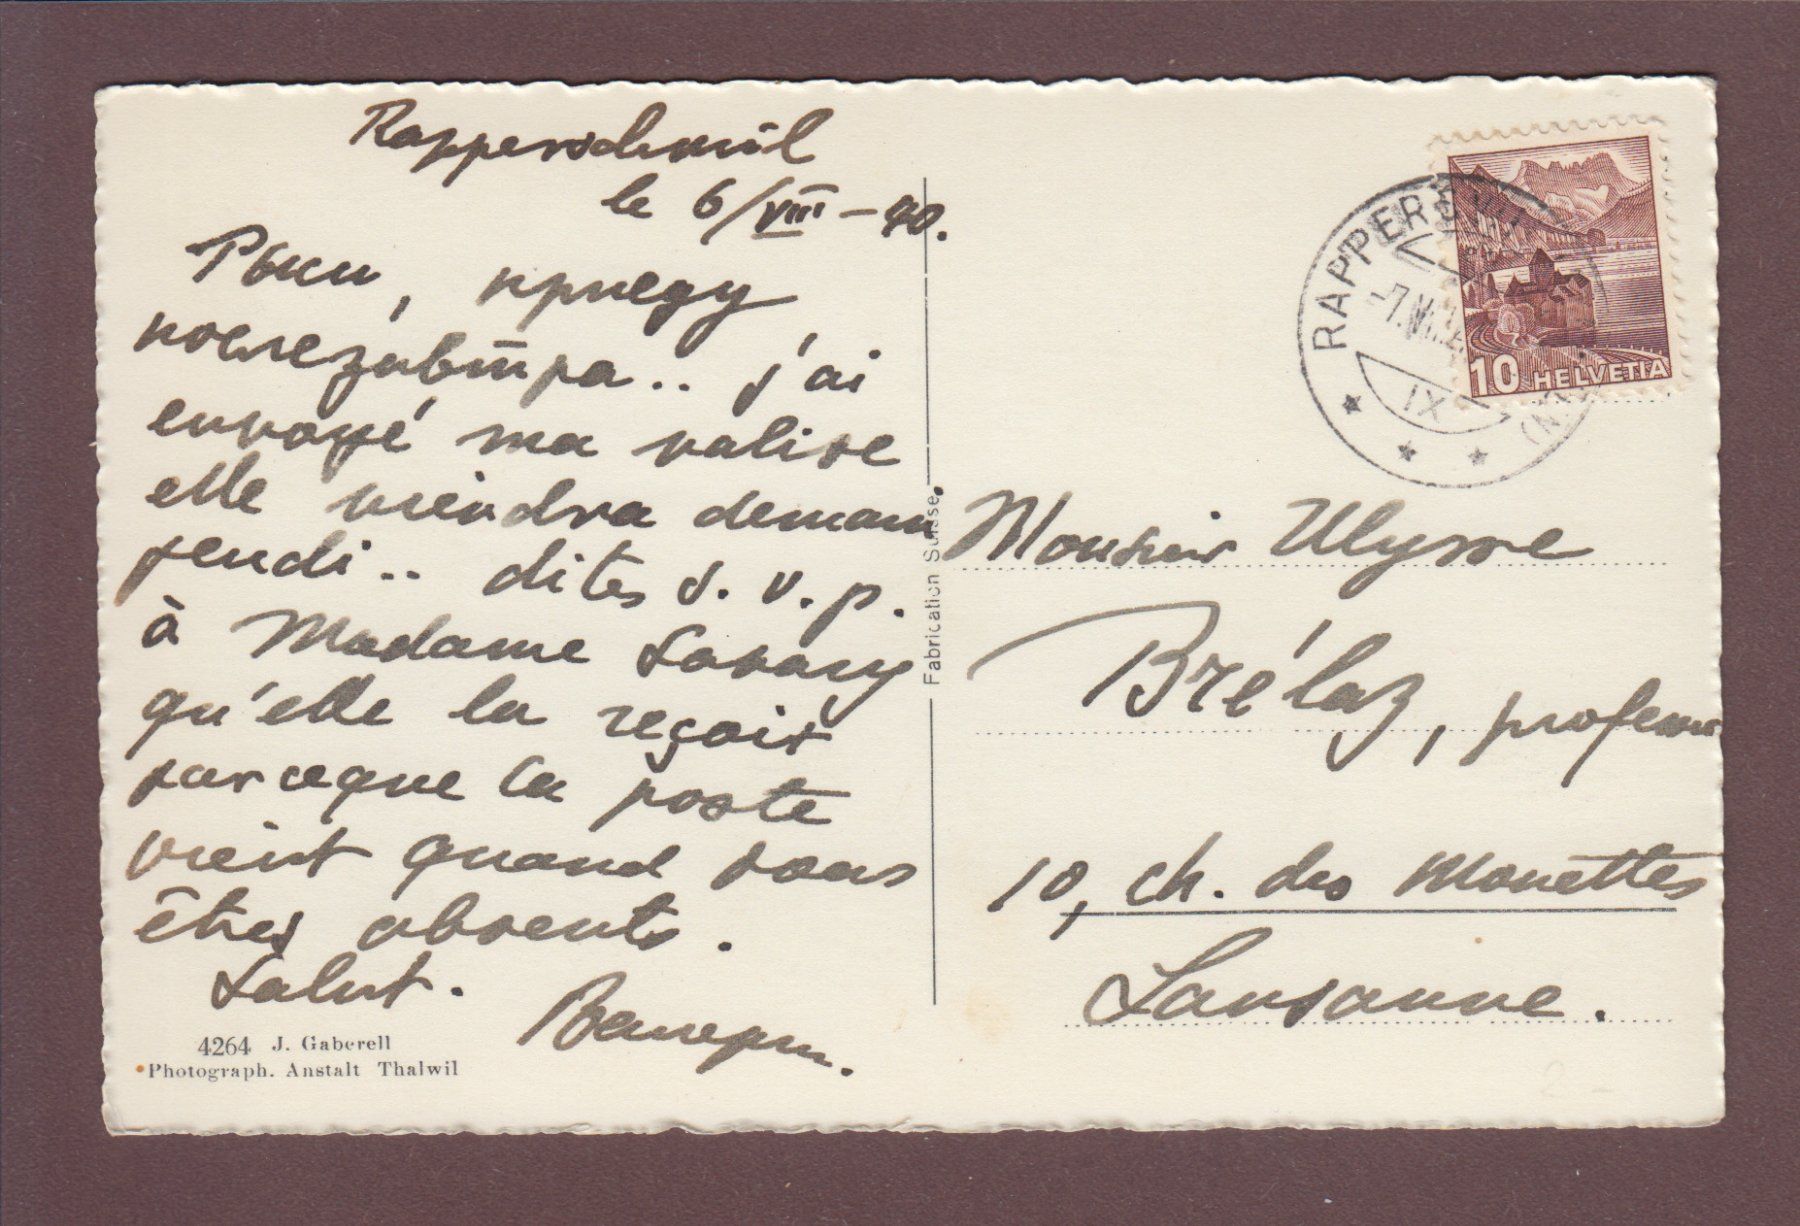 Rapperschwil
le 6/VIII – 40.
Рыки, приеду
послезавтра.. j'ai
envoyé ma valise
elle viendra demain
jeudi.. dites s.v.p.
à Madame Savary
qu'elle la reçoit
parceque la poste
vient quand vous
êtes absents.
Salut.
4264 J. Gaberell
Photograph. Anstalt Thalwil
Fabrication Suisse
RAPPERSWIL
HELVETIA
10
Monsieur Ulysse
Brélaz, professeur
10, ch. des Mouettes
Lausanne.